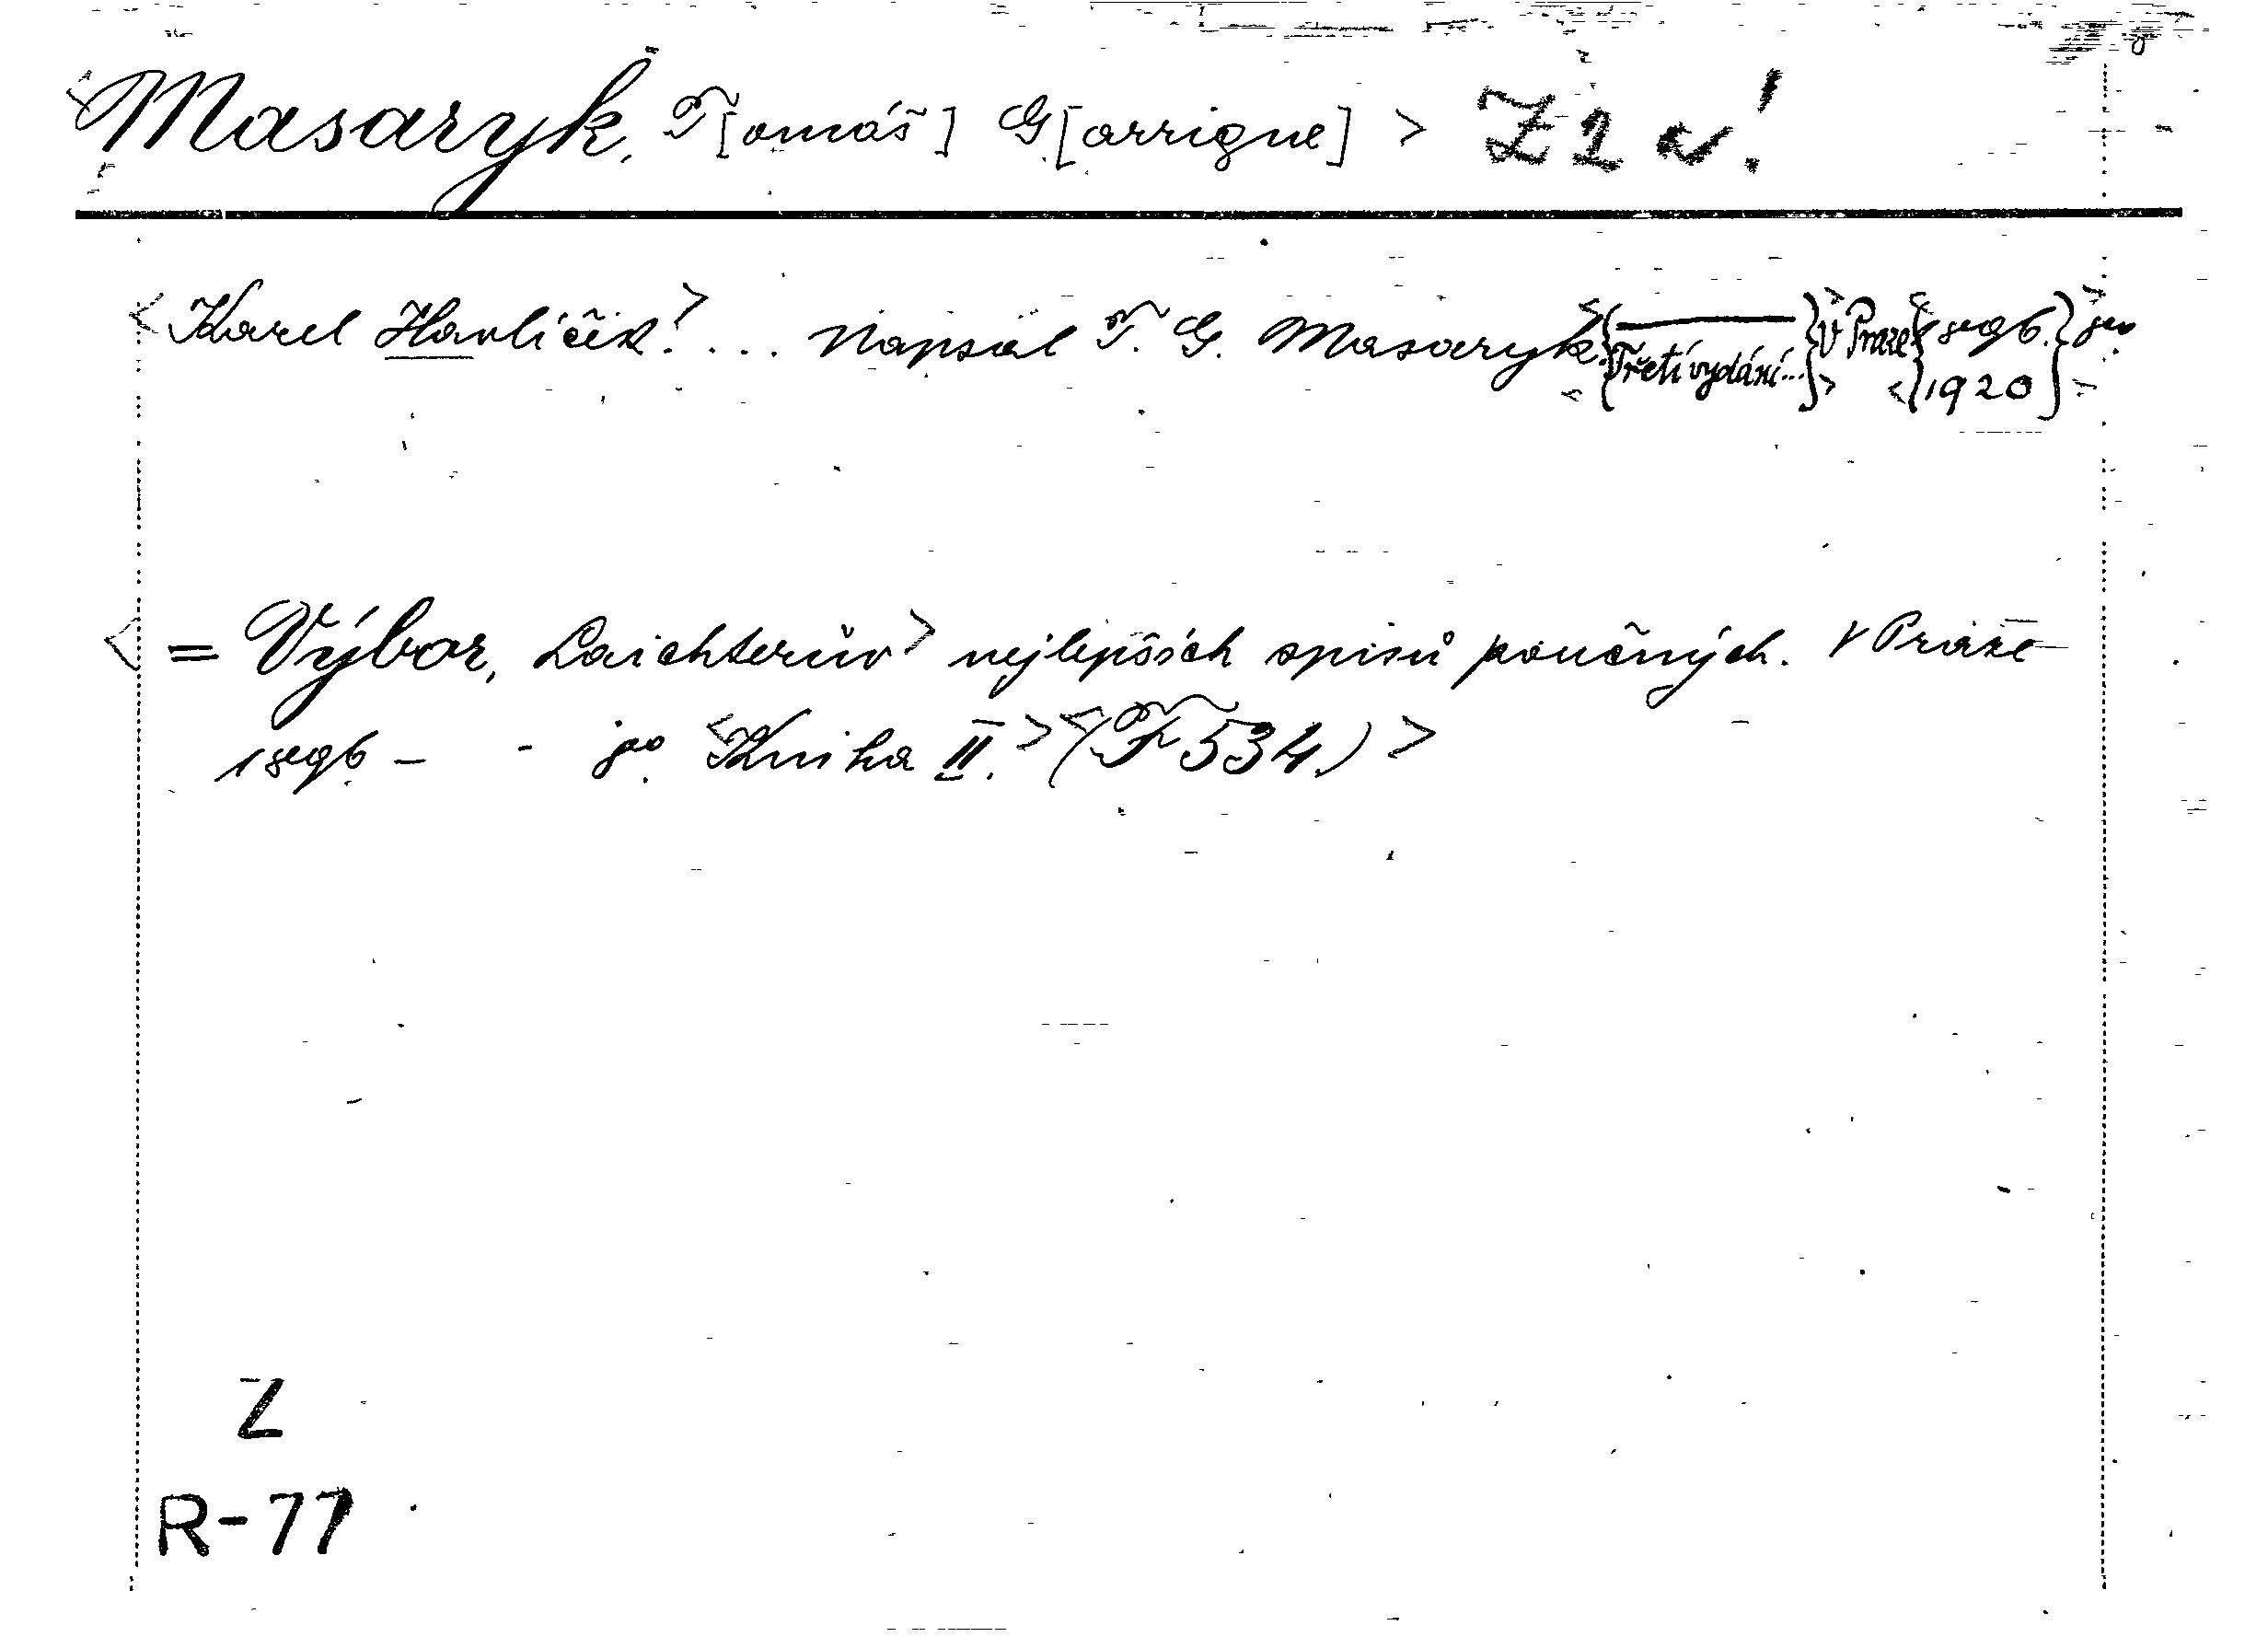 <Masaryk, T[omáš] G[arrigue] > Z 2 a!
<Karel Havlíček.> ... Napsal T. G. Masaryk. <{———} > V Praze <{1896.} > 8º.
<{Třetí vydání...}> <{1920}>
<= Výbor, Laichterův> nejlepších spisů poučných. V Praze
1896 – - 8º. <Kniha II.> <(F 534.)>
Z
R-77